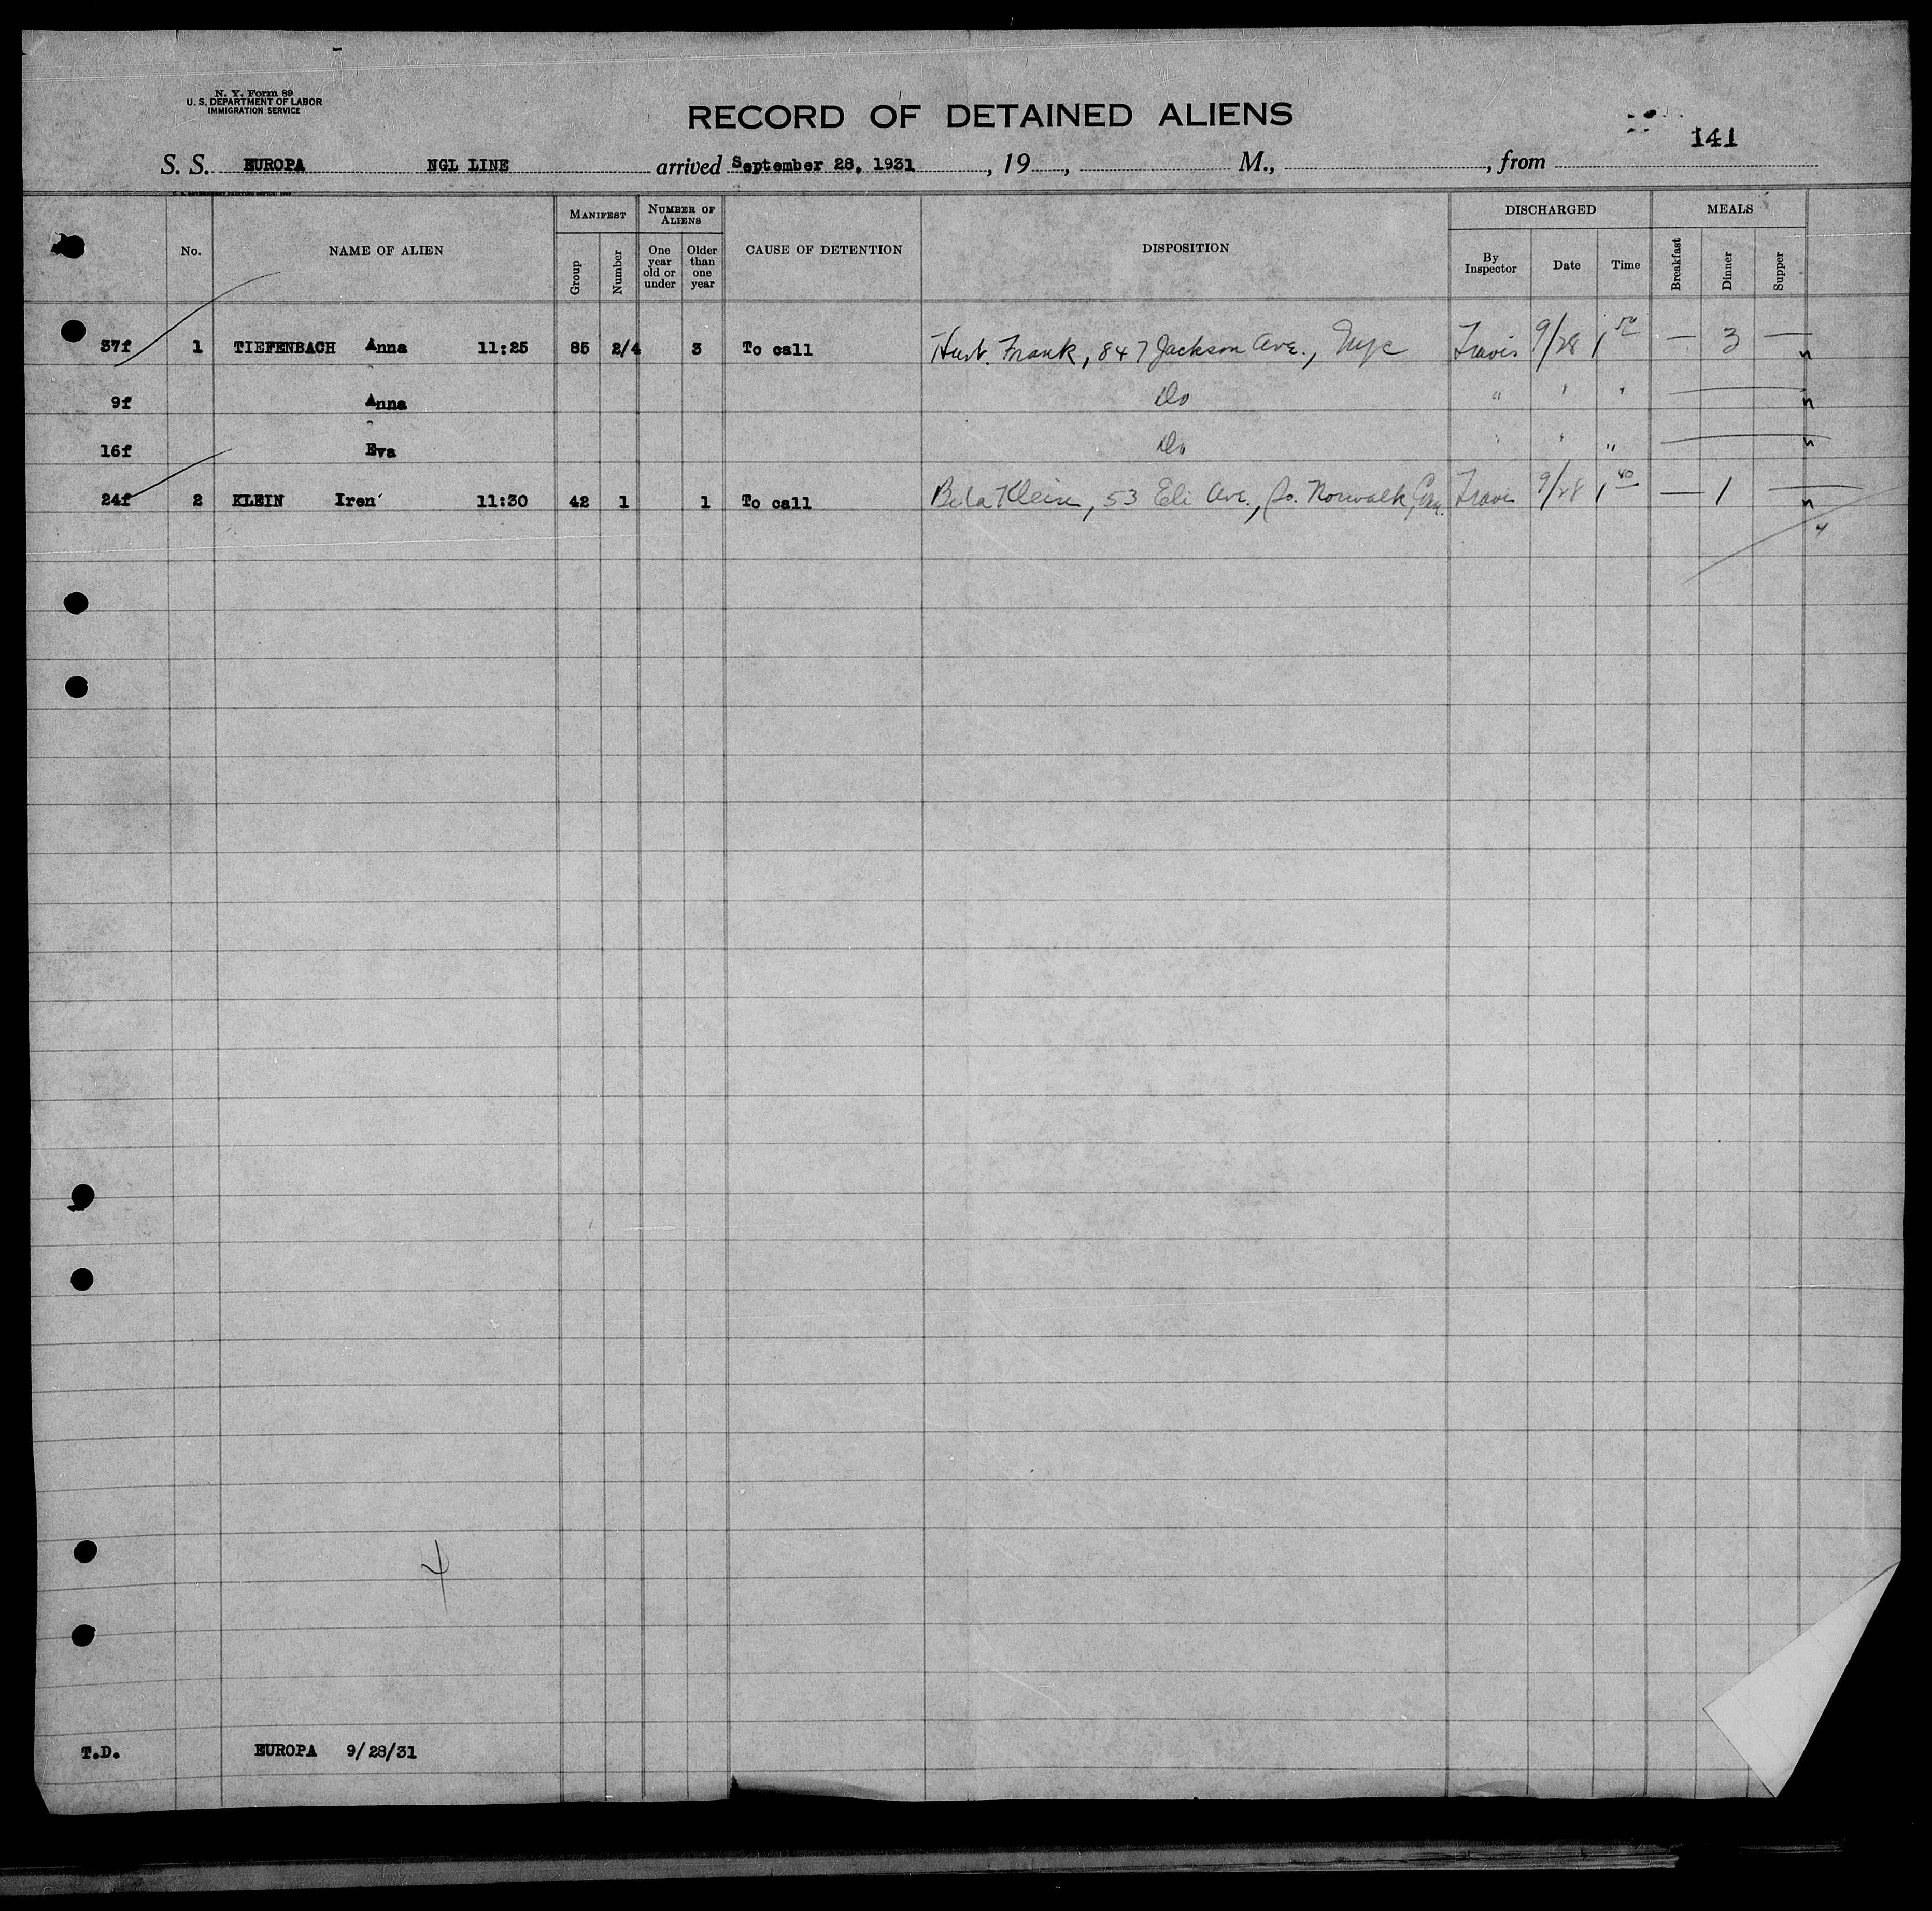 N. Y. Form 89
U. S. DEPARTMENT OF LABOR
IMMIGRATION SERVICE
RECORD OF DETAINED ALIENS
141
S. S. EUROPA NGL LINE arrived September 28, 1931, 19, M., from
No. NAME OF ALIEN MANIFEST Group Number NUMBER OF ALIENS One year old or under Older than one year CAUSE OF DETENTION DISPOSITION DISCHARGED By Inspector Date Time MEALS Breakfast Dinner Supper
37f 1 TIEFENBACH Anna 11:25 85 2/4 3 To call Husb. Frank, 847 Jackson Ave., Nyc Travis 9/28 1 50 — 3 — n
9f Anna Do " " " n
16f Eva Do " " " n
24f 2 KLEIN Iren 11:30 42 1 1 To call Bela Klein, 53 Eli Ave., So. Norwalk, Con. Travis 9/28 1 40 — 1 — n
4
4
T.D. EUROPA 9/28/31